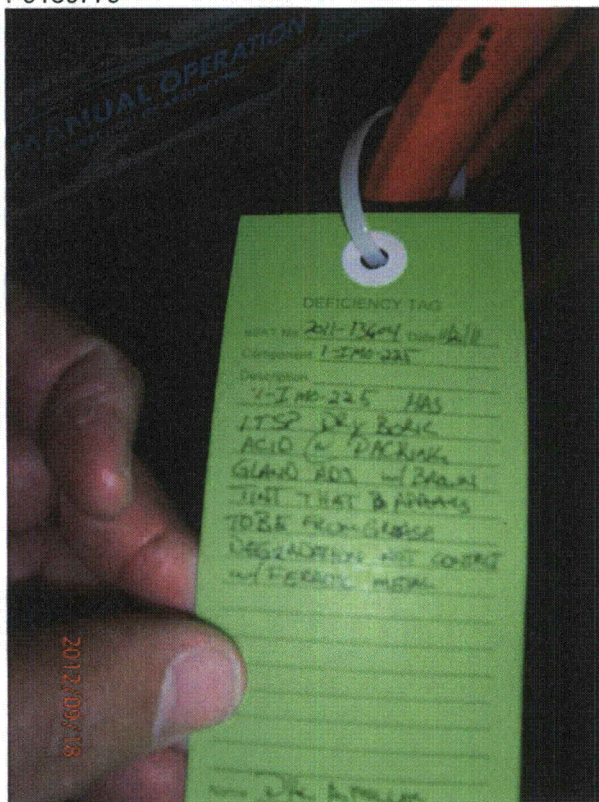 MANUAL OPERATION
DEFICIENCY TAG
No 2011-13604 Date
Component 1-IMO-225
Description
1-IMO-225 HAS
1TSP DRY BORIC
ACID @ PACKING
GLAND ADJ w/ BROWN
TINT THAT APPEARS
TO BE FROM GREASE
DEGRADATION NOT CONTACT
w/ FERRITIC METAL
Name
2012/09/18